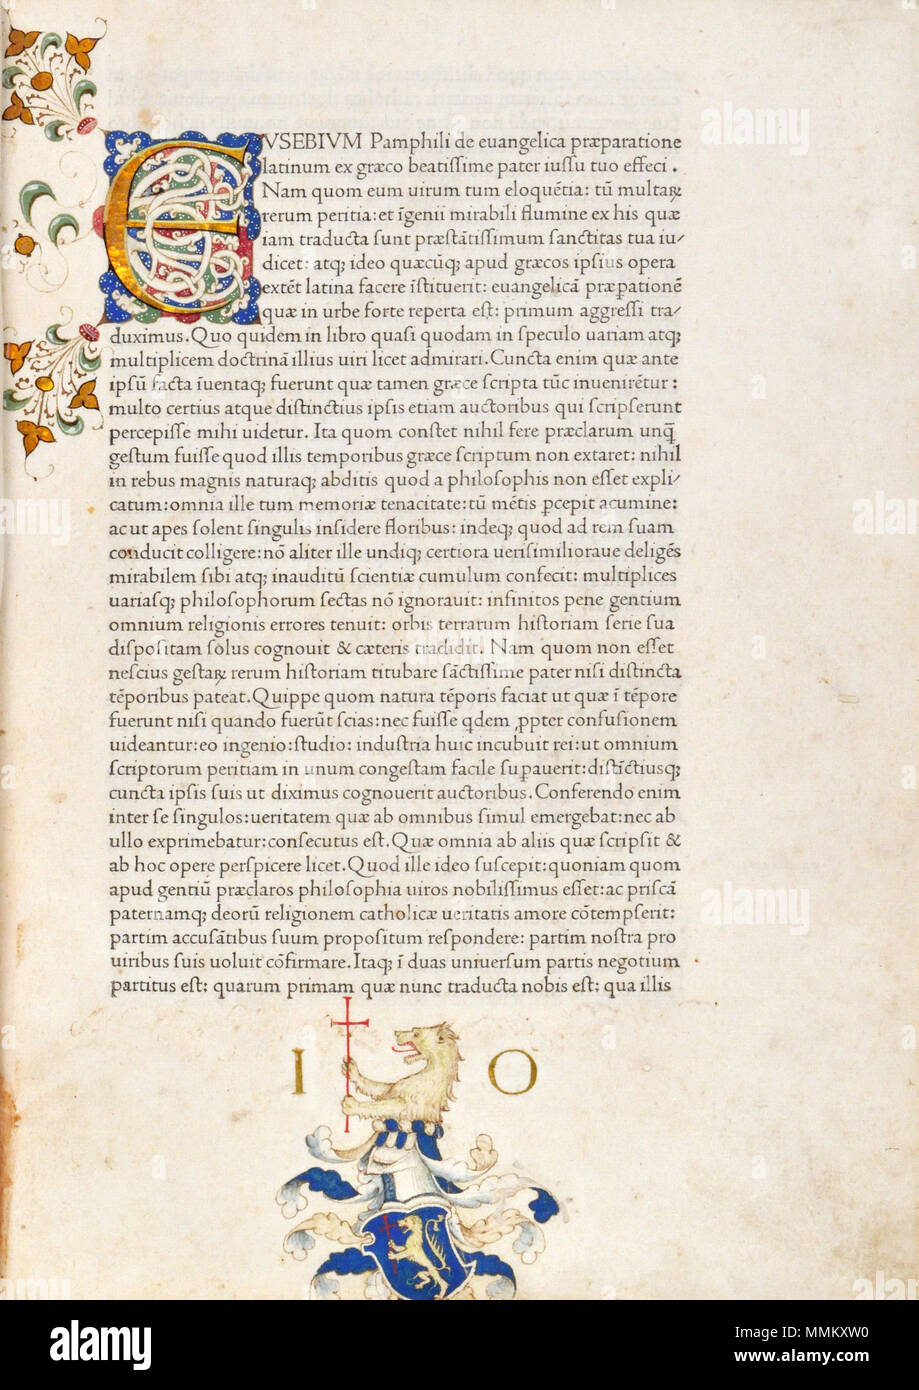 EVSEBIVM Pamphili de euangelica præparatione
latinum ex græco beatiſſime pater iuſſu tuo effeci.
Nam quom eum uirum tum eloquẽtia: tũ multaꝝ
rerum peritia: et ĩgenii mirabili flumine ex his quæ
iam traducta ſunt præſtãtiſſimum ſanctitas tua iu⸗
dicet: atq; ideo quæcũq; apud græcos ipſius opera
extẽt latina facere ĩſtituerit: euangelicã præꝑationẽ
quæ in urbe forte reperta eſt: primum aggreſſi tra⸗
duximus. Quo quidem in libro quaſi quodam in ſpeculo uariam atq;
multiplicem doctrinã illius uiri licet admirari. Cuncta enim quæ ante
ipſũ facta ĩuentaq; fuerunt quæ tamen græce ſcripta tũc inuenirẽtur:
multo certius atque diſtinctius ipſis etiam auctoribus qui ſcripſerunt
percepiſſe mihi uidetur. Ita quom conſtet nihil fere præclarum unq̃
geſtum fuiſſe quod illis temporibus græce ſcriptum non extaret: nihil
in rebus magnis naturaq; abditis quod a philoſophis non eſſet expli⸗
catum: omnia ille tum memoriæ tenacitate: tũ mẽtis ꝑcepit acumine:
ac ut apes ſolent ſingulis inſidere floribus: indeq; quod ad rem ſuam
conducit colligere: nõ aliter ille undiq; certiora ueriſimilioraue deligẽs
mirabilem ſibi atq; inauditũ ſcientiæ cumulum confecit: multiplices
uariaſq; philoſophorum ſectas nõ ignorauit: infinitos pene gentium
omnium religionis errores tenuit: orbis terrarum hiſtoriam ſerie ſua
diſpoſitam ſolus cognouit & cæteris tradidit. Nam quom non eſſet
neſcius geſtaꝝ rerum hiſtoriam titubare ſãctiſſime pater niſi diſtincta
tẽporibus pateat. Quippe quom natura tẽporis faciat ut quæ ĩ tẽpore
fuerunt niſi quando fuerũt ſcias: nec fuiſſe qdem ꝓpter confuſionem
uideantur: eo ingenio: ſtudio: induſtria huic incubuit rei: ut omnium
ſcriptorum peritiam in unum congeſtam facile ſuꝑauerit: diſtĩctiusq;
cuncta ipſis ſuis ut diximus cognouerit auctoribus. Conferendo enim
inter ſe ſingulos: ueritatem quæ ab omnibus ſimul emergebat: nec ab
ullo exprimebatur: conſecutus eſt. Quæ omnia ab aliis quæ ſcripſit &
ab hoc opere perſpicere licet. Quod ille ideo ſuſcepit: quoniam quom
apud gentiũ præclaros philoſophia uiros nobiliſſimus eſſet: ac priſcã
paternamq; deorũ religionem catholicæ ueritatis amore cõtempſerit:
partim accuſãtibus ſuum propoſitum reſpondere: partim noſtra pro
uiribus ſuis uoluit cõfirmare. Itaq; ĩ duas uniuerſum partis negotium
partitus eſt: quarum primam quæ nunc traducta nobis eſt: qua illis
I O
alamy
Image ID: MMKXW0
www.alamy.com